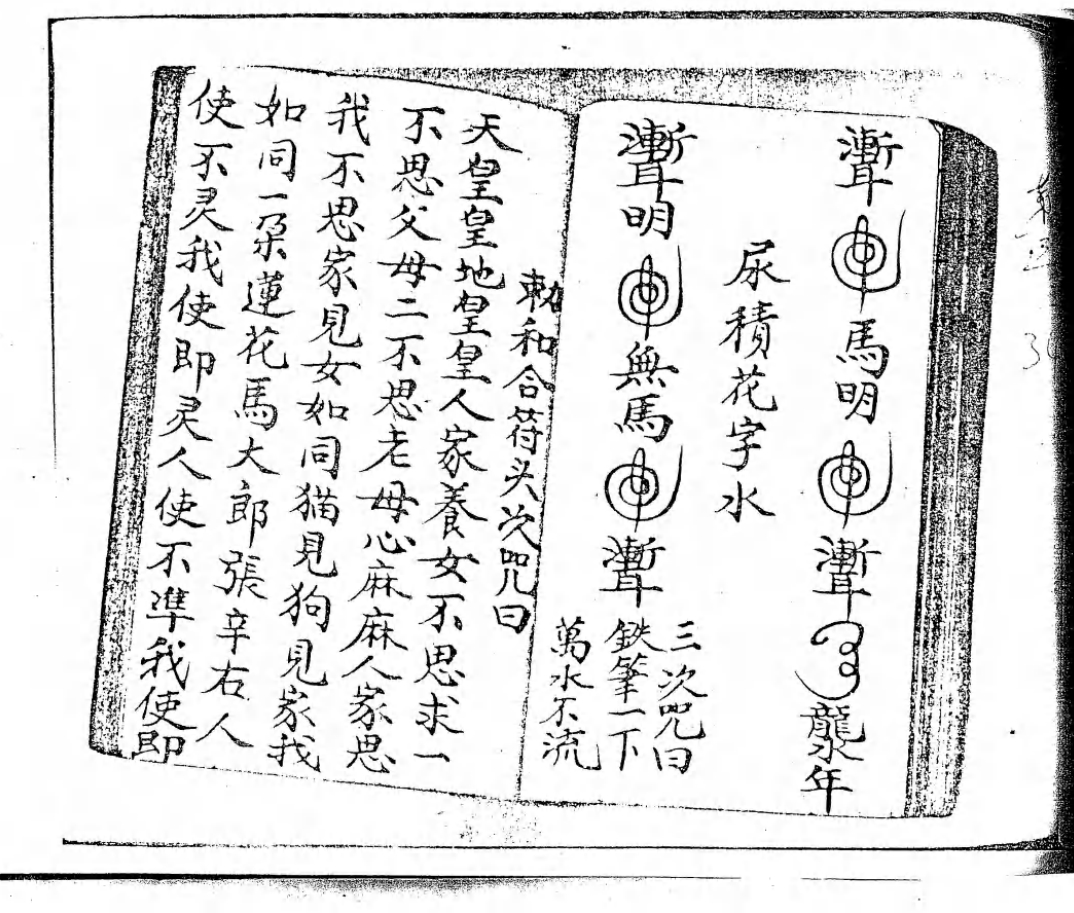 馬明
龍水年
尿積花字水
明無馬
三次咒曰
鉄筆一下
萬水不流
敕和合符头次咒曰
天皇皇地皇皇人家養女不思求一
不思父母二不思老母心麻麻人家思
我不思家見女如同猫見狗見家我
如同一朵蓮花馬大郎張辛右人
使不灵我使即灵人使不準我使即